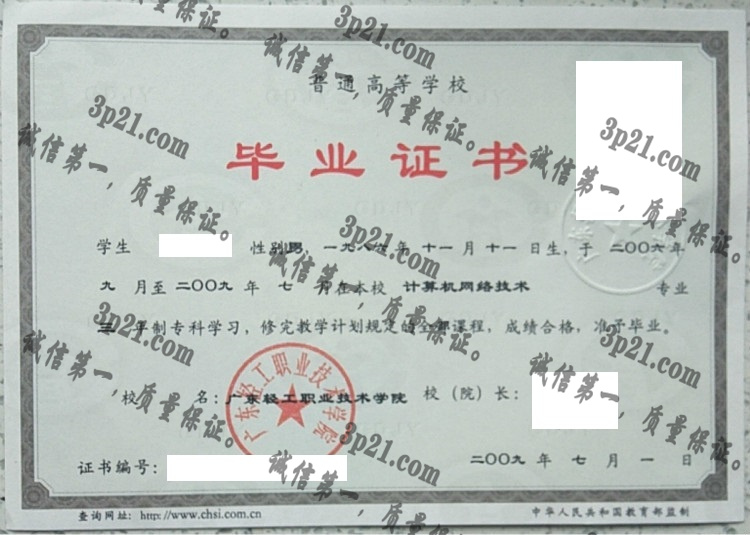 普通高等学校
毕业证书
学生 性别男，一九八六年 十一月十一日生，于二〇〇六年
九月至二〇〇九年 七 月在本校 计算机网络技术 专业
三 年制专科学习，修完教学计划规定的全部课程，成绩合格，准予毕业。
校 名：广东轻工职业技术学院 校（院）长：
广东轻工职业技术学院
证书编号： 二〇〇九年 七 月 一 日
查询网址：http://www.chsi.com.cn 中华人民共和国教育部监制
3p21.com
诚信第一，质量保证。
3p21.com
诚信第一，质量保证。
3p21.com
诚信第一，质量保证。
3p21.com
诚信第一，质量保证。
3p21.com
诚信第一，质量保证。
3p21.com
诚信第一，质量保证。
3p21.com
诚信第一，质量保证。